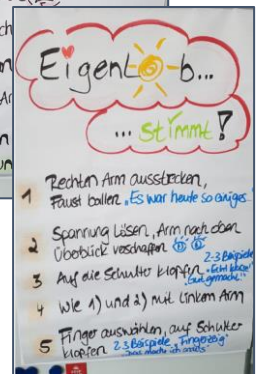 Eigenlob...
... stimmt!
1 Rechten Arm ausstrecken,
Faust ballen „Es war heute so einiges
2 Spannung lösen, Arm nach oben
Überblick verschaffen
2-3 Beispiele
3 Auf die Schulter klopfen „Echt klasse"
„Gut gemacht"
4 Wie 1) und 2) mit linkem Arm
5 Finger auswählen, auf Schulter
klopfen 2-3 Beispiele „Fingerzeig"